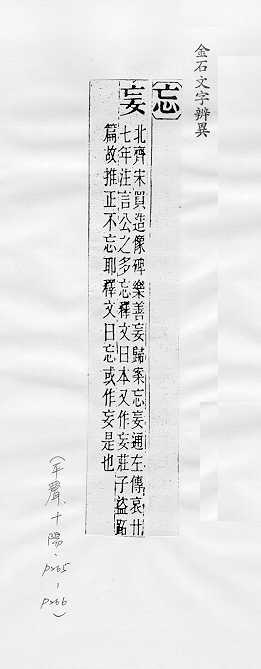 金石文字辨異
〔忘〕
妄
北齊宋買造像碑樂善妄歸案忘妄通左傳哀廿
七年注言公之多忘釋文曰本又作妄莊子盜跖
篇故推正不忘耶釋文曰忘或作妄是也
(平聲、十陽、
P265-
P266)